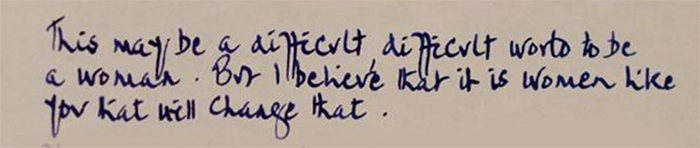 This may be a difficult, difficult world to be
a woman. But I believe that it is women like
you that will change that.